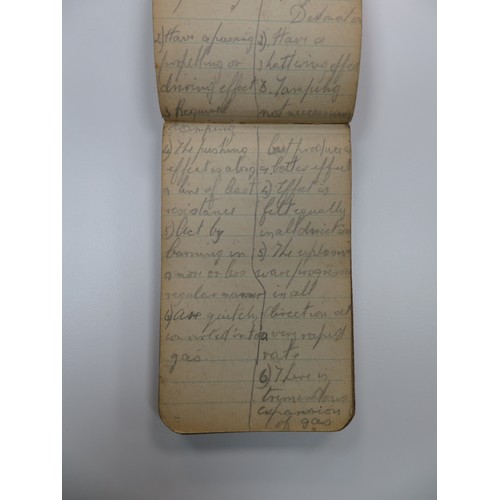 2) Have a pushing
propelling or
driving effect
3 Required
tamping
4) The pushing
effect is along
a line of least
resistance
5) Act by
burning in
a more or less
regular manner
6) Are quickly
converted into
gas.
2) Have a
shattering effect
3. Tamping
not necessary
but produces
a better effect
4) Effect is
felt equally
in all direction
5) The explosive
wave progresses
in all
direction at
a very rapid
rate
6) There is
tremendous
expansion
of gas